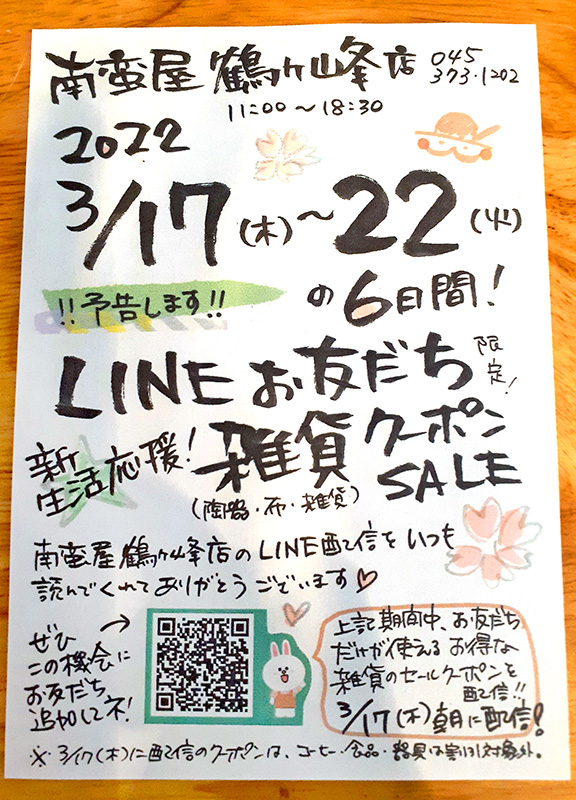 南蛮屋 鶴ヶ峰店 045 373・1202
11:00〜18:30
2022
3/17(木)〜22(火)
!!予告します!! の6日間!
LINEお友だち 限定!
新生活応援! 雑貨 クーポン SALE
(陶器・布・雑貨)
南蛮屋鶴ヶ峰店のLINE配信をいつも
読んでくれてありがとうございます♡
ぜひ
この機会に
お友だち
追加してネ!
上記期間中、お友だち
だけが使えるお得な
雑貨のセールクーポンを
配信!!
3/17(木)朝に配信!
※3/17(木)に配信のクーポンは、コーヒー・食品・器具は割引対象外。